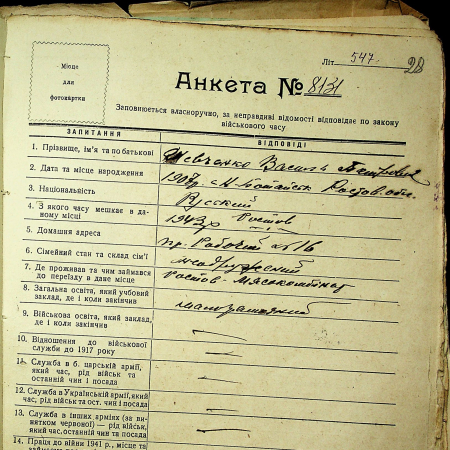 Літ. 547. 20
Місце
для
фотокартки
Анкета № 8131
Заповнюється власноручно, за неправдиві відомості відповідає по закону
військового часу
ЗАПИТАННЯ
ВІДПОВІДІ
1. Прізвище, ім'я та по батькові
Шевченко Василь Петрович
2. Дата та місце народження
1907 р. с. Н-Ботайск Ростов. обл.
3. Національність
Русский
4. З якого часу мешкає в даному місці
1943 р Ростов
5. Домашня адреса
пр. Рабочий № 16
6. Сімейний стан та склад сім'ї
7. Де проживав та чим займався
до переїзду в дане місце
Ростов Мясокомбінат
8. Загальна освіта, який учбовий
заклад, де і коли закінчив
малограмотний
9. Військова освіта, який заклад,
де і коли закінчив
10. Відношення до військової
служби до 1917 року
11. Служба в б. царській армії,
який час, рід військ та
останній чин і посада
12. Служба в Українській армії, який
час, рід військ та ост. чин і посада
13. Служба в інших арміях (за ви-
нятком червоної) — рід військ,
який час, останній чин та посада
14. Праця до війни 1941 р., місце та